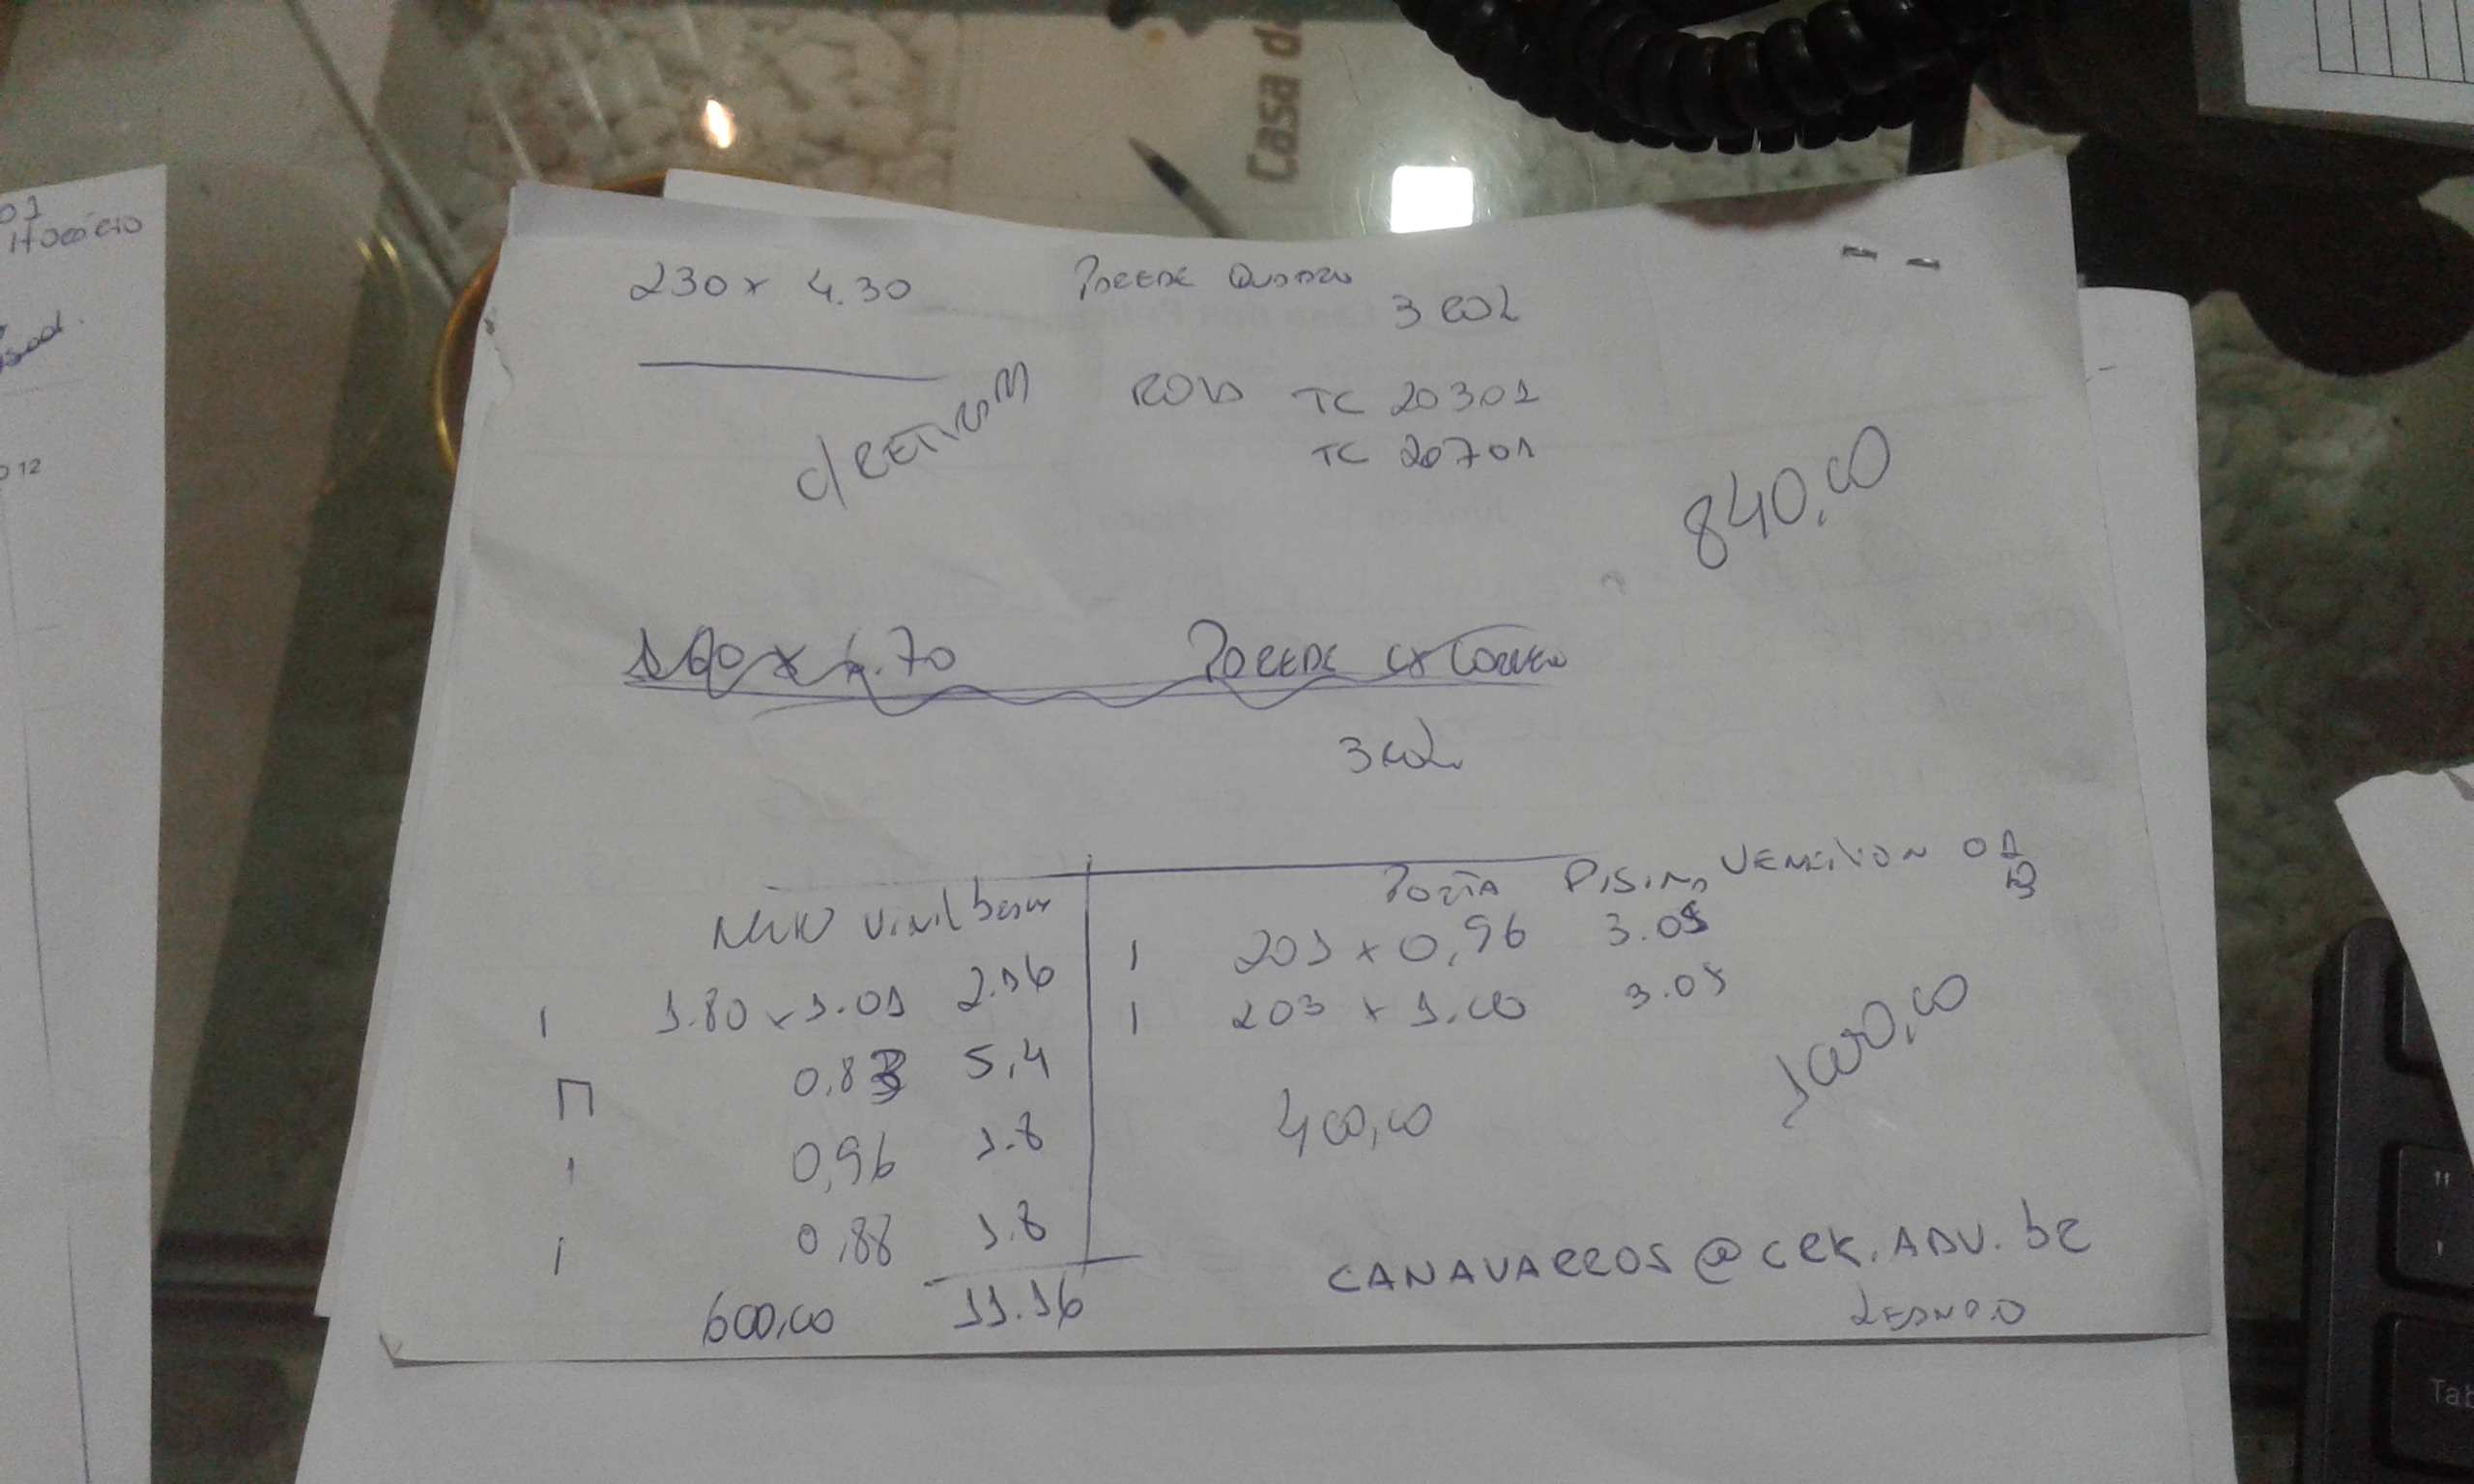 230 x 4.30 PAREDE QUARTO
3 ROL
ROLO TC 20301
TC 20701
c/ RETIRAM
840,00
4.70 PAREDE
3 ROL
PORTA PISINA VERMILION 01
vinil
1 1.80 x 1.01 2.16
0,83 5,4
1 0,96 1.8
1 0,88 1.8
600,00 11.16
1 201 x 0,96 3.05
1 203 x 1.00 3.05
400,00
1000,00
CANAVARROS@CRK.ADV.br
Casa da
Tab
012